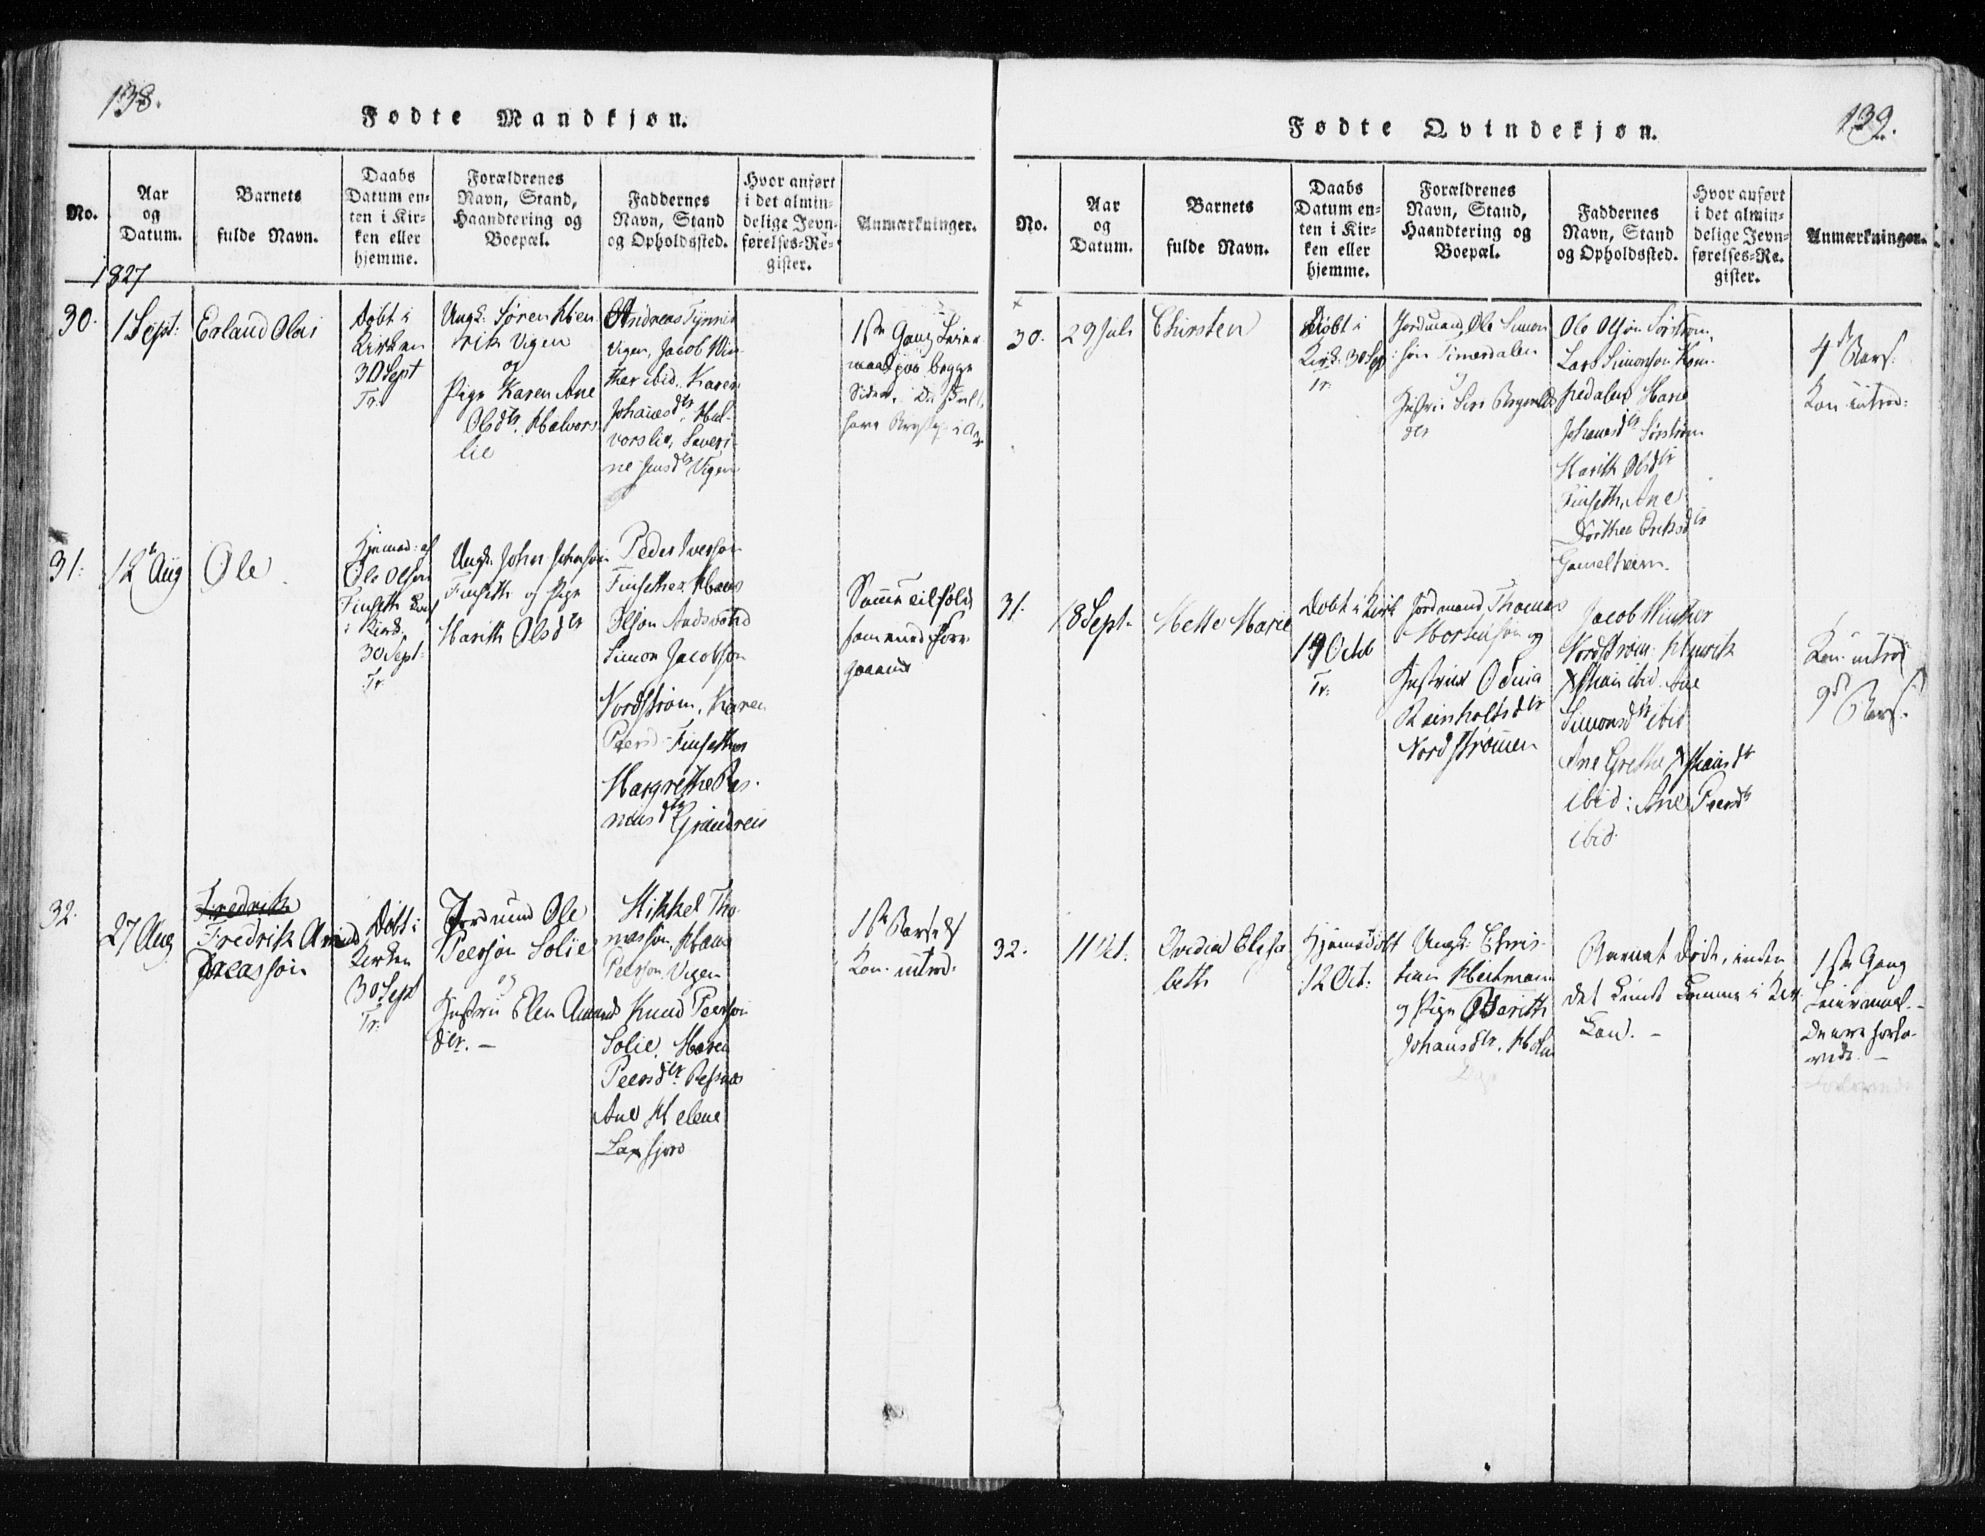 138.
Fødte Mandkjøn.
No.
Aar
og
Datum.
Barnets
fulde Navn.
Daabs
Datum en-
ten i Kir-
ken eller
hjemme.
Forældrenes
Navn, Stand,
Haandtering og
Boepæl.
Faddernes
Navn, Stand
og Opholdssted.
Hvor anført
i det almin-
delige Jevn-
førelses-Re-
gister.
Anmærkninger.
1827
30.
1 Sept:
Erland Olai
Døbt i
Kirken
30 Sept
Tr.
Ungk: Søren Hen
rik Vigen
og
Pige Karen Ane
Olsdtr. Halvors
lie
Andreas Tynnes
Vigen, Jacob Win-
ther ibid. Karen
Johanesdtr Hal-
vorslie, Severi-
ne Jensdtr Vigen
1ste Gang Leier
maal paa begge
Sider.
31.
12 Aug
Ole
Hjemmed: af
Ole Olsen
Finseth
i Kirk.
30 Sept:
Tr.
Ungk. Johan Johansøn
Finseth og Pige
Marith Olsdtr
Peder Iverson
Finsether, Hans
Olson Andsvand
Simon Jacobson
Nordstrøm, Karen
Peersd. Finsether
Margrethe Ras-
musdtr Grandreis
Samme
som med Fore
gaaende
32.
27 Aug
Fredrik
Fredrik Arnt
Døbt i
Kirken
30 Sept
Tr.
Jordmand Ole
Peersøn Solie
og
Hustru Elen Amunds
dtr. —
Mikkel Tho-
masson, Hans
Peerson Vigen
Knud Peerson
Solie, Maren
Peersdtr. Refsnæs
Ane Helene
Laxfjord
1ste Barsel
Kon. introd.
139.
Fødte Qvindekjøn.
No.
Aar
og
Datum.
Barnets
fulde Navn.
Daabs
Datum en-
ten i Kir-
ken eller
hjemme.
Forældrenes
Navn, Stand,
Haandtering og
Boepæl.
Faddernes
Navn, Stand
og Opholdssted.
Hvor anført
i det almin-
delige Jevn-
førelses-Re-
gister.
Anmærkninger.
30.
29 Juli
Chirsten
Døbt i
Kirk. 30 Sept
Tr.
Jordmand Ole Simon
søn Timerdalen
og
Hustru Siri
dtr
Ole Olson Sørstrøm,
Lars Simonson
Marie
Johanesdtr Sørstrøm
Marith Olsdtr
Finseth, Ane
Dorthea Eriksdtr
Gameltvern.
4de Bars.
Kon introd:
31.
18 Sept.
Mette Marie
Døbt i Kirk
14 Octb
Tr:
Jordmand Thomas
Mortensøn og
Hustrue Odina
Reinholtsdtr
Nordstrømen
Jacob Winther
Nordstrøm. Henrik
Xstian ibid. Ane
Simonsdtr ibid
Ane Grethe Xstiansdtr
ibid: Ane Peersdtr
ibid.
Kon. introd
9de Bars.
32.
11 Oct.
Elisa
beth
Hjemmedøbt
12 Oct:
Ungk: Chris-
tian Heitmann
og Pige Berith
Johansdtr. Holm
Barnet døde, inden
det kunde komme i Kir
ken. —
1ste Gang
Leiermaal. —
De ere forlo-
vede. —